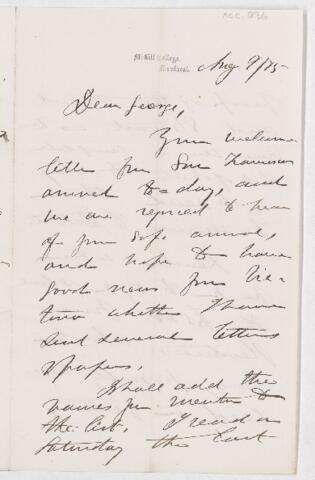 Acc. 926
McGill College
Montreal
Aug 9/75
Dear George,
Your welcome
letter from San Francisco
arrived to-day, and
we are rejoiced to hear
of your safe arrival,
and hope to have
good news from Vic-
toria whither I have
sent several letters
& papers.
I shall add the
names you mention to
the list. I read on
Saturday the last